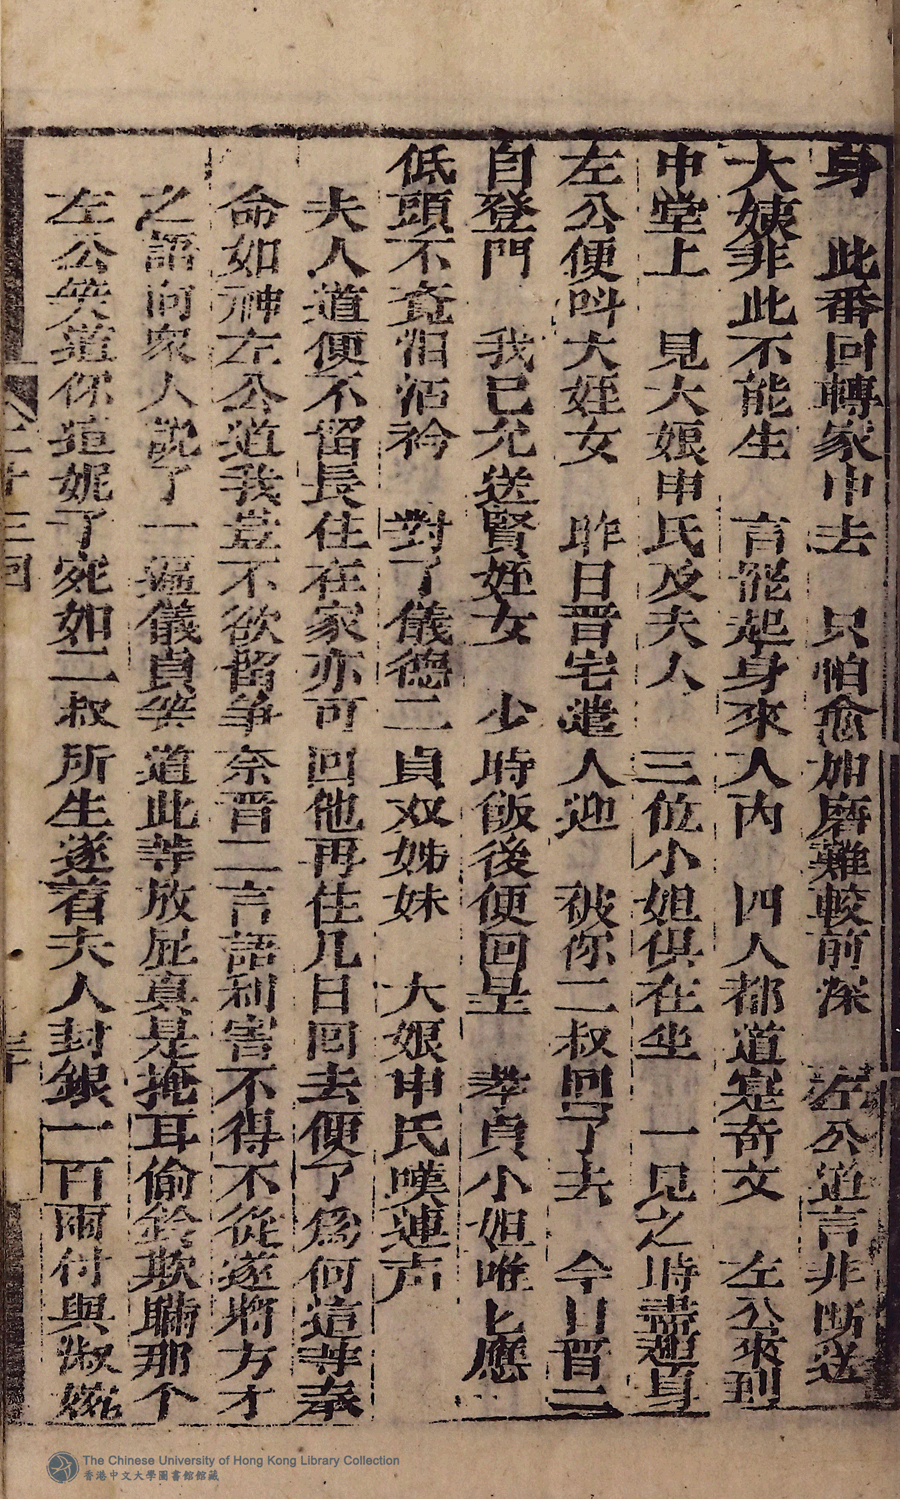 身　此番回轉家中去　只怕愈加磨難較前深　左公道言非断送
大姨非此不能生　言罷起身來人内　四人都道寔奇文　左公來到
中堂上　見大娘申氏及夫人　三位小姐俱在坐　一見之時盡趨身
左公便呌大姪女　昨日晋宅遣人迎　被你二叔回了去　今日晋二
自登門　我已允送賢姪女　少時飯後便回呈　孝貞小姐唯匕應
低頭不竟泪沾衿　對了儀德二貞双姊妹　大娘申氏嘆連声
夫人道便不留長住在家亦可回他再住几日回去便了為何這等奉
命如神左公道我荳不欲留争奈晋二言語利害不得不從遂将方才
之語向衆人説了一遍儀貞笑道此等放屁真是掩耳偷鈴欺瞞那个
左公笑道你這妮了宛如二叔所生遂着夫人封銀一百兩付與淑婉
二十三回
The Chinese University of Hong Kong Library Collection
香港中文大學圖書館館藏